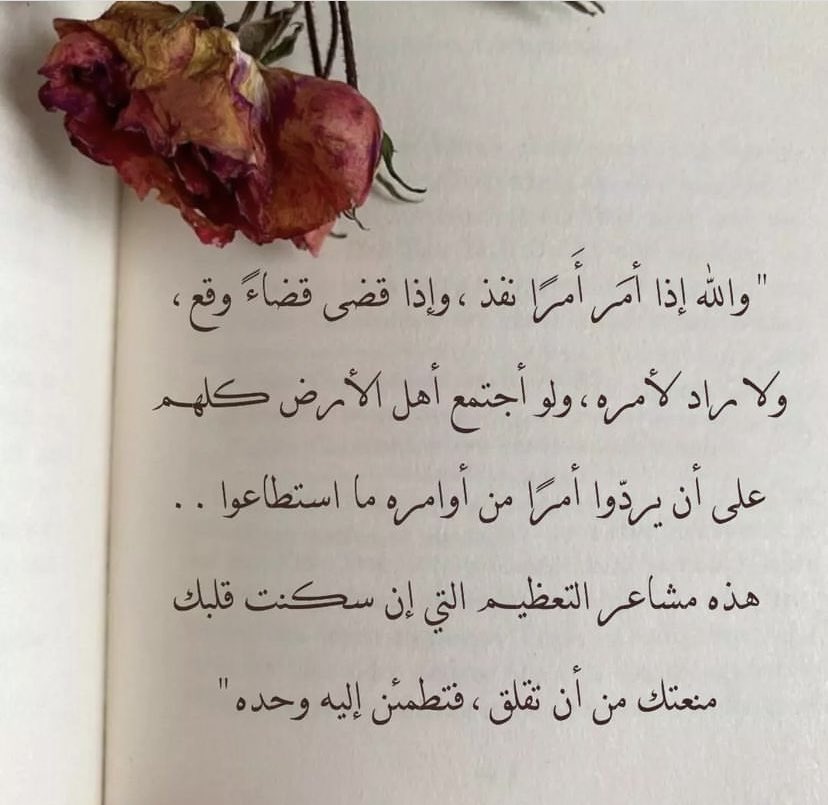 "والله إذا أمَر أَمرًا نفذ ، وإذا قضى قضاءً وقع ،
ولا راد لأمره ، ولو أجتمع أهل الأرض كلهم
على أن يردّوا أمرًا من أوامره ما استطاعوا . .
هذه مشاعر التعظيم التي إن سكنت قلبك
منعتك من أن تقلق ، فتطمئن إليه وحده"